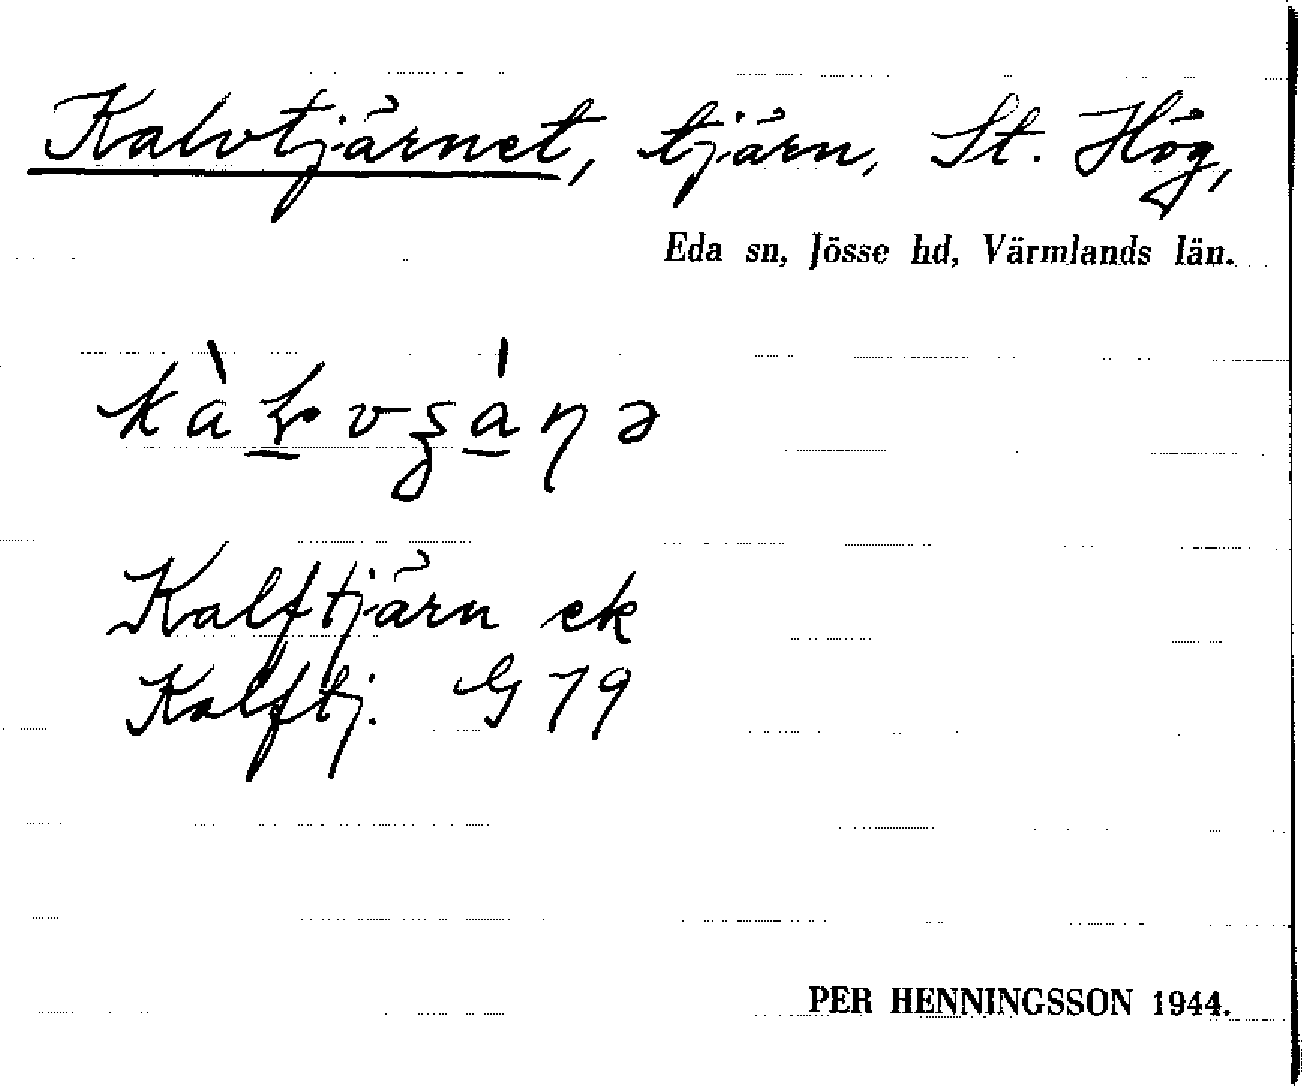 Kalvtjärnet, tjärn, St. Hög,
Eda sn, Jösse hd, Värmlands län.
Kalftjärn ek
Kalftj. G 79
PER HENNINGSSON 1944.